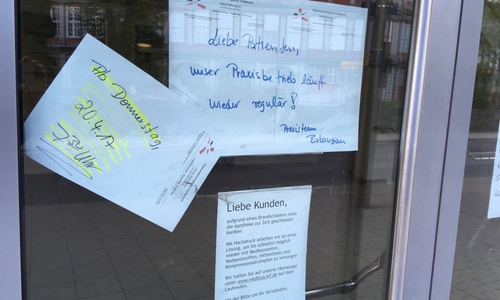 Liebe Patienten,
unser Praxisbetrieb läuft
wieder regulär!
Praxisteam
Ab Donnerstag
20.4.17
Liebe Kunden,
aufgrund eines Brandschadens muss
die Apotheke zur Zeit geschlossen
bleiben.
Mit Hochdruck arbeiten wir an einer
Lösung, um Sie schnellst möglich
wieder mit Medikamenten,
Verbandstoffen, Hilfsmitteln und
Kompressionsstrümpfen zu versorgen
Wir halten Sie auf unserer Homepage
unter
auf dem
Laufenden.
Wir bitten um Ihr Verständnis.